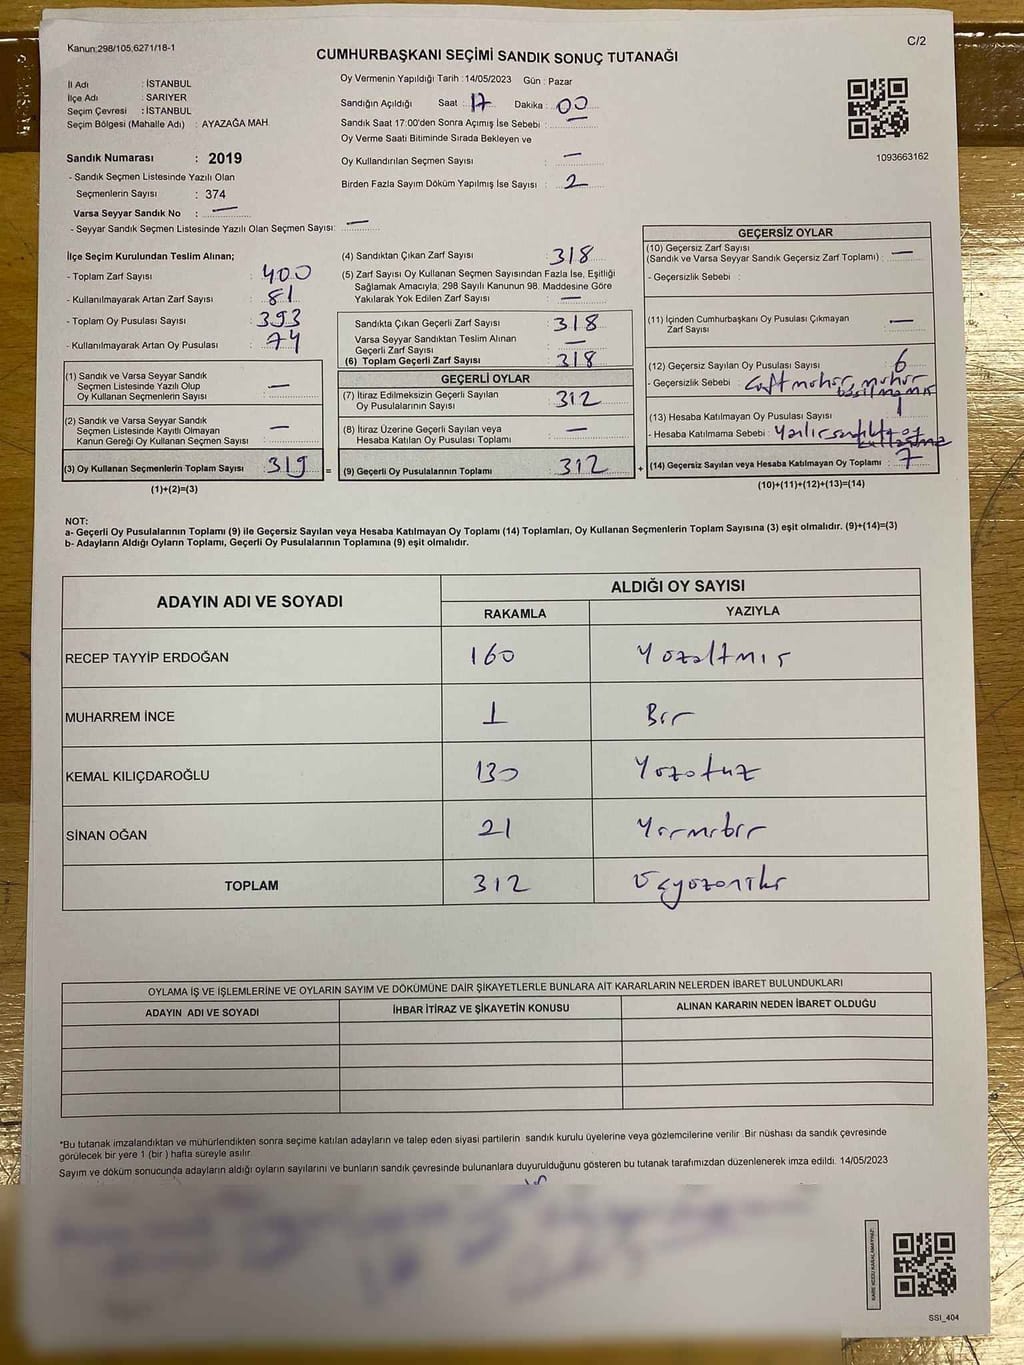 Kanun:298/105,6271/18-1
C/2
CUMHURBAŞKANI SEÇİMİ SANDIK SONUÇ TUTANAĞI
İl Adı : İSTANBUL
İlçe Adı : SARIYER
Seçim Çevresi : İSTANBUL
Seçim Bölgesi (Mahalle Adı) : AYAZAĞA MAH.
Sandık Numarası : 2019
- Sandık Seçmen Listesinde Yazılı Olan
Seçmenlerin Sayısı : 374
Varsa Seyyar Sandık No : —
- Seyyar Sandık Seçmen Listesinde Yazılı Olan Seçmen Sayısı: —
Oy Vermenin Yapıldığı Tarih : 14/05/2023 Gün : Pazar
Sandığın Açıldığı Saat : 17 Dakika : 00
Sandık Saat 17:00'den Sonra Açımış İse Sebebi : —
Oy Verme Saati Bitiminde Sırada Bekleyen ve
Oy Kullandırılan Seçmen Sayısı : —
Birden Fazla Sayım Döküm Yapılmış İse Sayısı : 2
1093663162
İlçe Seçim Kurulundan Teslim Alınan;
- Toplam Zarf Sayısı : 400
- Kullanılmayarak Artan Zarf Sayısı : 81
- Toplam Oy Pusulası Sayısı : 393
- Kullanılmayarak Artan Oy Pusulası : 74
(1) Sandık ve Varsa Seyyar Sandık
Seçmen Listesinde Yazılı Olup
Oy Kullanan Seçmenlerin Sayısı : —
(2) Sandık ve Varsa Seyyar Sandık
Seçmen Listesinde Kayıtlı Olmayan
Kanun Gereği Oy Kullanan Seçmen Sayısı : —
(3) Oy Kullanan Seçmenlerin Toplam Sayısı : 319 =
(1)+(2)=(3)
(4) Sandıktan Çıkan Zarf Sayısı : 318
(5) Zarf Sayısı Oy Kullanan Seçmen Sayısından Fazla İse, Eşitliği
Sağlamak Amacıyla, 298 Sayılı Kanunun 98. Maddesine Göre
Yakılarak Yok Edilen Zarf Sayısı : —
Sandıkta Çıkan Geçerli Zarf Sayısı : 318
Varsa Seyyar Sandıktan Teslim Alınan
Geçerli Zarf Sayısı : —
(6) Toplam Geçerli Zarf Sayısı : 318
GEÇERLİ OYLAR
(7) İtiraz Edilmeksizin Geçerli Sayılan
Oy Pusulalarının Sayısı : 312
(8) İtiraz Üzerine Geçerli Sayılan veya
Hesaba Katılan Oy Pusulası Toplamı : —
(9) Geçerli Oy Pusulalarının Toplamı : 312 +
GEÇERSİZ OYLAR
(10) Geçersiz Zarf Sayısı
(Sandık ve Varsa Seyyar Sandık Geçersiz Zarf Toplamı) : —
- Geçersizlik Sebebi :
(11) İçinden Cumhurbaşkanı Oy Pusulası Çıkmayan
Zarf Sayısı : —
(12) Geçersiz Sayılan Oy Pusulası Sayısı : 6
- Geçersizlik Sebebi : Çift mühür, mühür
basılmamış
(13) Hesaba Katılmayan Oy Pusulası Sayısı : 1
- Hesaba Katılmama Sebebi : Yanlış sandıkta oy
kullanma
(14) Geçersiz Sayılan veya Hesaba Katılmayan Oy Toplamı : 7
(10)+(11)+(12)+(13)=(14)
NOT:
a- Geçerli Oy Pusulalarının Toplamı (9) ile Geçersiz Sayılan veya Hesaba Katılmayan Oy Toplamı (14) Toplamları, Oy Kullanan Seçmenlerin Toplam Sayısına (3) eşit olmalıdır. (9)+(14)=(3)
b- Adayların Aldığı Oyların Toplamı, Geçerli Oy Pusulalarının Toplamına (9) eşit olmalıdır.
ADAYIN ADI VE SOYADI ALDIĞI OY SAYISI
RAKAMLA YAZIYLA
RECEP TAYYİP ERDOĞAN 160 Yüzaltmış
MUHARREM İNCE 1 Bir
KEMAL KILIÇDAROĞLU 130 Yüzotuz
SİNAN OĞAN 21 Yirmibir
TOPLAM 312 Üçyüzoniki
OYLAMA İŞ VE İŞLEMLERİNE VE OYLARIN SAYIM VE DÖKÜMÜNE DAİR ŞİKAYETLERLE BUNLARA AİT KARARLARIN NELERDEN İBARET BULUNDUKLARI
ADAYIN ADI VE SOYADI İHBAR İTİRAZ VE ŞİKAYETİN KONUSU ALINAN KARARIN NEDEN İBARET OLDUĞU
*Bu tutanak imzalandıktan ve mühürlendikten sonra seçime katılan adayların ve talep eden siyasi partilerin sandık kurulu üyelerine veya gözlemcilerine verilir. Bir nüshası da sandık çevresinde
görülecek bir yere 1 (bir ) hafta süreyle asılır.
Sayım ve döküm sonucunda adayların aldığı oyların sayılarını ve bunların sandık çevresinde bulunanlara duyurulduğunu gösteren bu tutanak tarafımızdan düzenlenerek imza edildi. 14/05/2023
KARE KODU KARALAMAYINIZ!
SSI_404